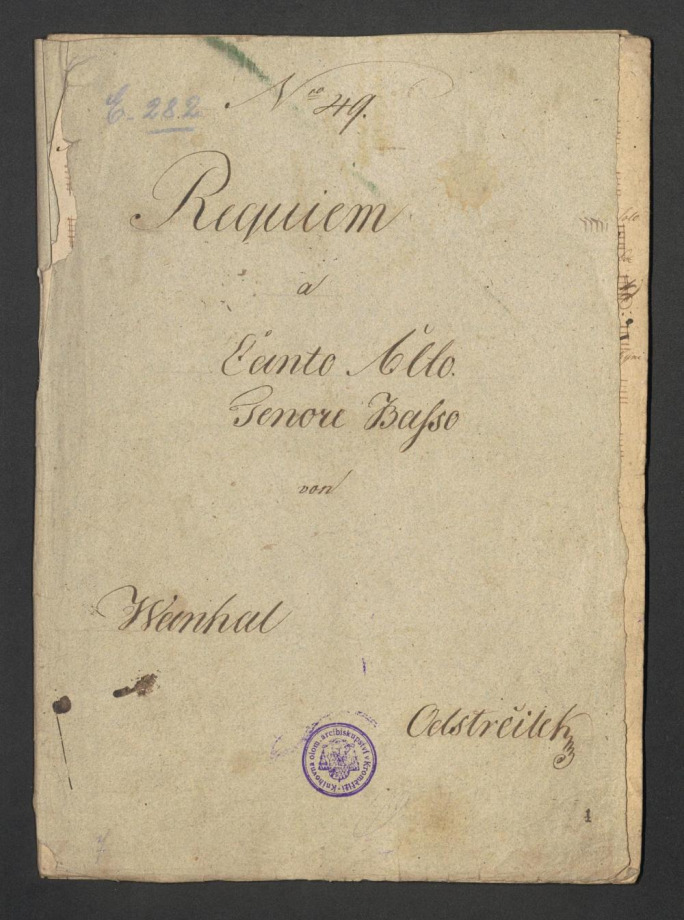 E. 282
No 49.
Requiem
a
Canto Alto.
Tenore Basso
von
Wanhal
Odstrčilek
Knihovna olom. arcibiskupství v Kroměříži
1